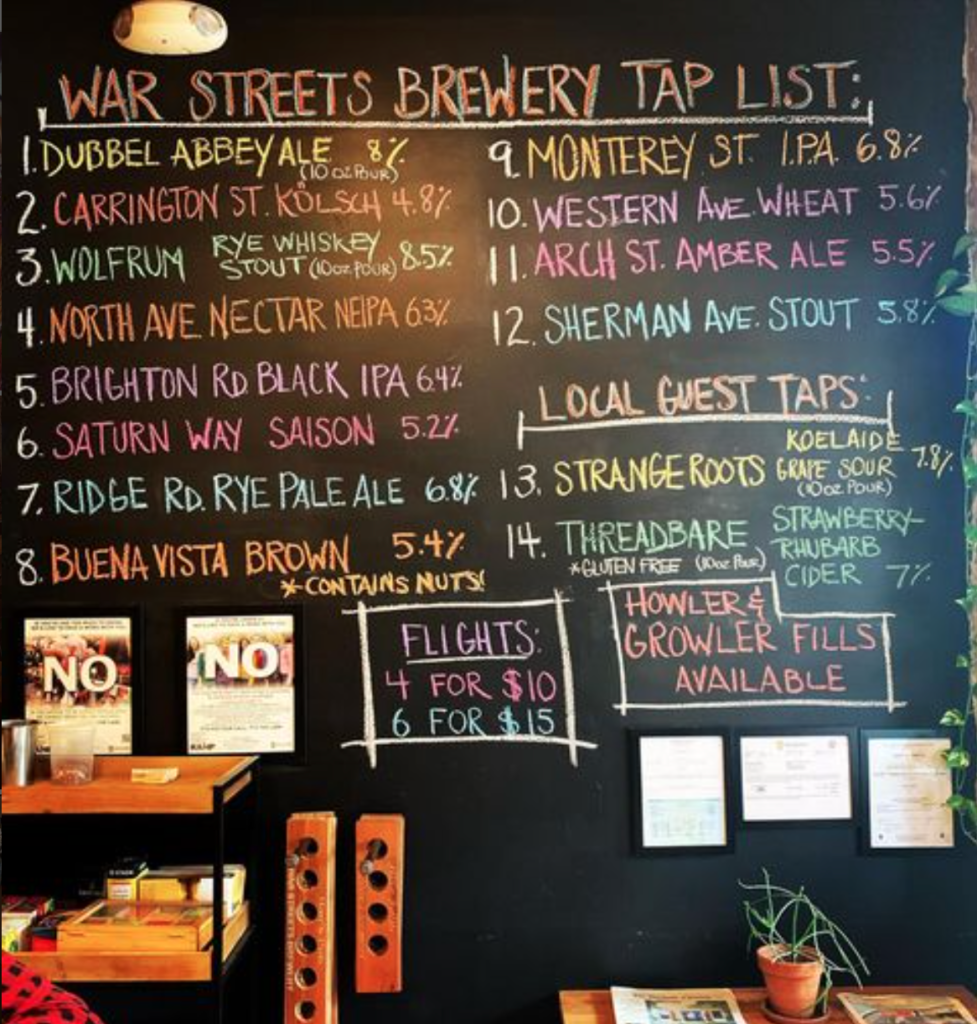 WAR STREETS BREWERY TAP LIST:
1. DUBBEL ABBEY ALE 8%
(10 OZ POUR)
2. CARRINGTON ST. KÖLSCH 4.8%
3. WOLFRUM RYE WHISKEY
STOUT (10OZ POUR) 8.5%
4. NORTH AVE. NECTAR NEIPA 6.3%
5. BRIGHTON RD. BLACK IPA 6.4%
6. SATURN WAY SAISON 5.2%
7. RIDGE RD. RYE PALE ALE 6.8%
8. BUENA VISTA BROWN 5.4%
*CONTAINS NUTS!
9. MONTEREY ST. I.P.A. 6.8%
10. WESTERN AVE. WHEAT 5.6%
11. ARCH ST. AMBER ALE 5.5%
12. SHERMAN AVE. STOUT 5.8%
LOCAL GUEST TAPS:
13. STRANGE ROOTS KOELAIDE
GRAPE SOUR 7.8%
(10OZ POUR)
14. THREADBARE STRAWBERRY-
RHUBARB
*GLUTEN FREE (10OZ POUR)
CIDER 7%
FLIGHTS:
4 FOR $10
6 FOR $15
HOWLER &
GROWLER FILLS
AVAILABLE
NO
NO